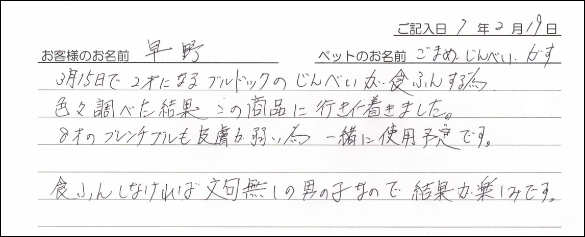 ご記入日 7年2月19日
お客様のお名前 早野 ペットのお名前 ごまめ、じんべい、かす
3月15日で2才になるブルドックのじんべいが食ふんする為
色々調べた結果この商品に行き着きました。
8才のフレンチブルも皮膚が弱い為一緒に使用予定です。
食ふんしなければ文句無しの男の子なので結果が楽しみです。